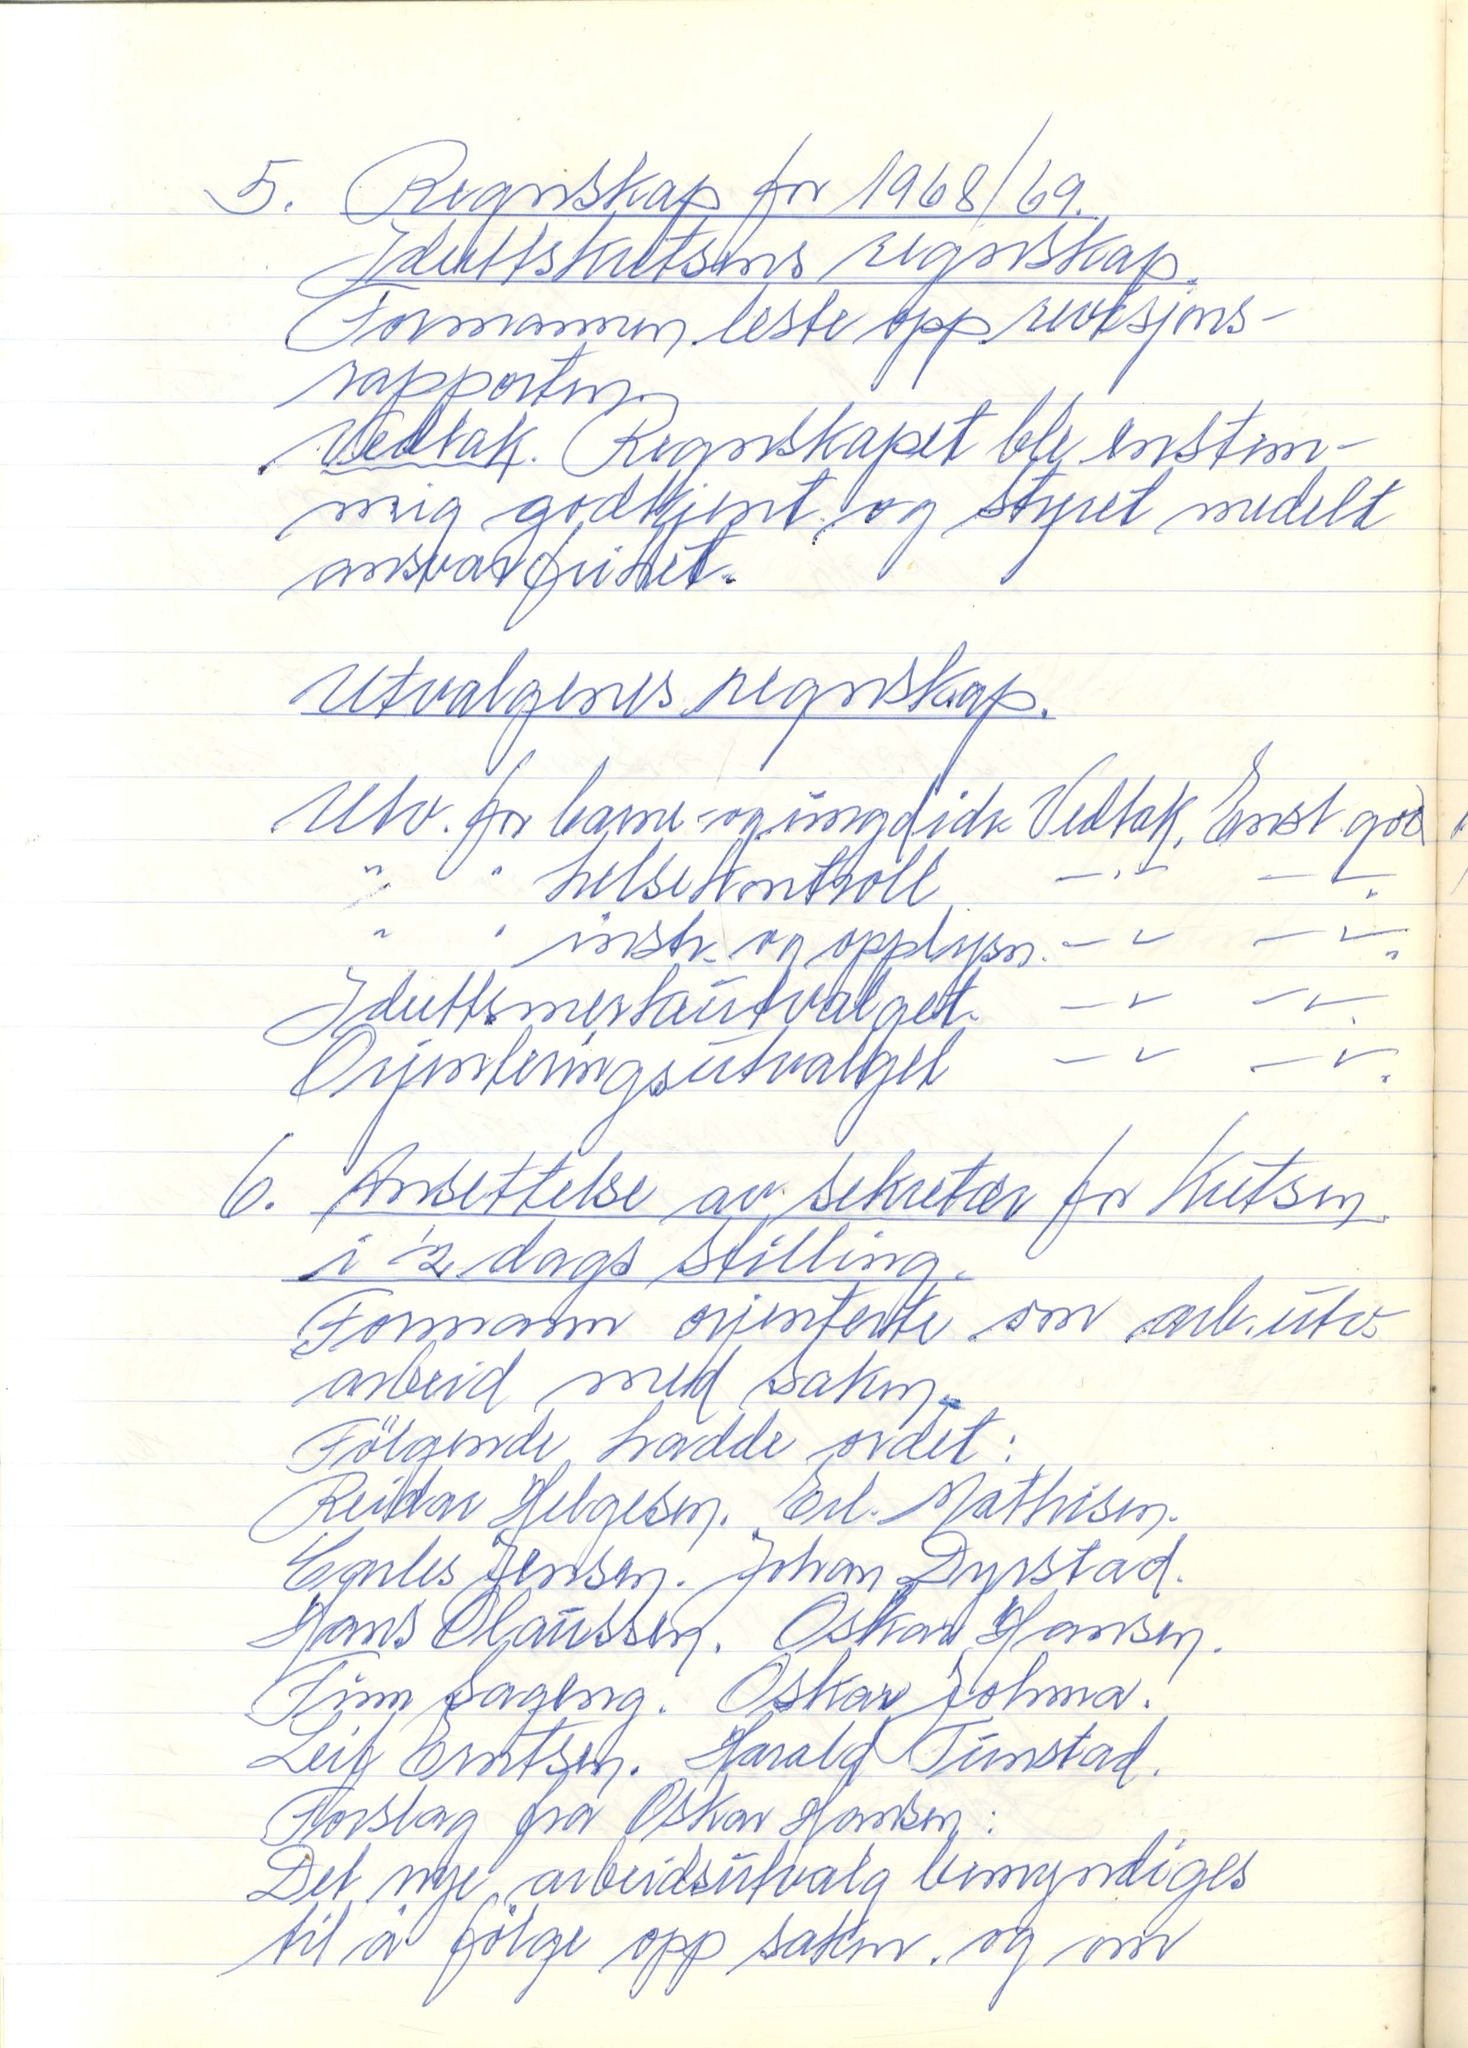 5. Regnskap for 1968/69.
Idrettskretsens regnskap.
Formannen leste opp revisjons-
rapporten
Vedtak. Regnskapet ble enstem-
mig godkjent og styret meddelt
ansvarfrihet.
Utvalgenes regnskap.
Utv. for barne- og ungd idr. Vedtak. Enst. god
" " helsekontroll —"— —"—.
" " instr. og opplysn. —"— —"—.
Idrettsmerkeutvalget. —"— —"—.
Orienteringsutvalget —"— —"—.
6. Ansettelse av sekretær for kretsen
i 1/2 dags stilling.
Formann orienterte om arb.utv.
arbeid med saken.
Følgende hadde ordet:
Reidar Helgesen. Erl. Mathisen.
Jensen. Johan Dyrstad.
Hans Olaussen. Oskar Hansen.
Finn Sageng. Oskar Johma.
Leif Erntsen. Harald Tunstad.
Forslag fra Oskar Hansen:
Det nye arbeidsutvalg bemyndiges
til å følge opp saken. og om